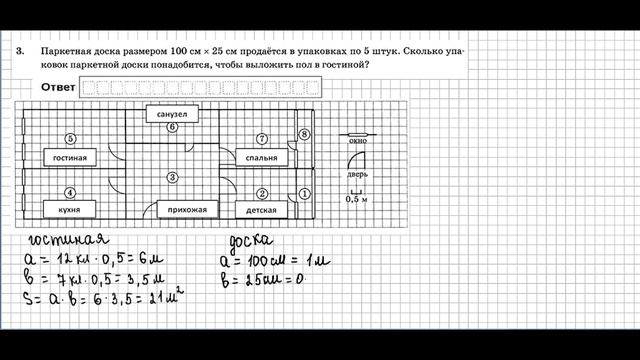 3. Паркетная доска размером 100 см × 25 см продаётся в упаковках по 5 штук. Сколько упа-
ковок паркетной доски понадобится, чтобы выложить пол в гостиной?
Ответ
санузел
5
6
7
8
гостиная
спальня
окно
3
дверь
4
2
1
0,5 м
кухня
прихожая
детская
гостиная
a = 12 кл · 0,5 = 6 м
в = 7 кл · 0,5 = 3,5 м
S = a · в = 6 · 3,5 = 21 м²
доска
a = 100 см = 1 м
в = 25 см = 0